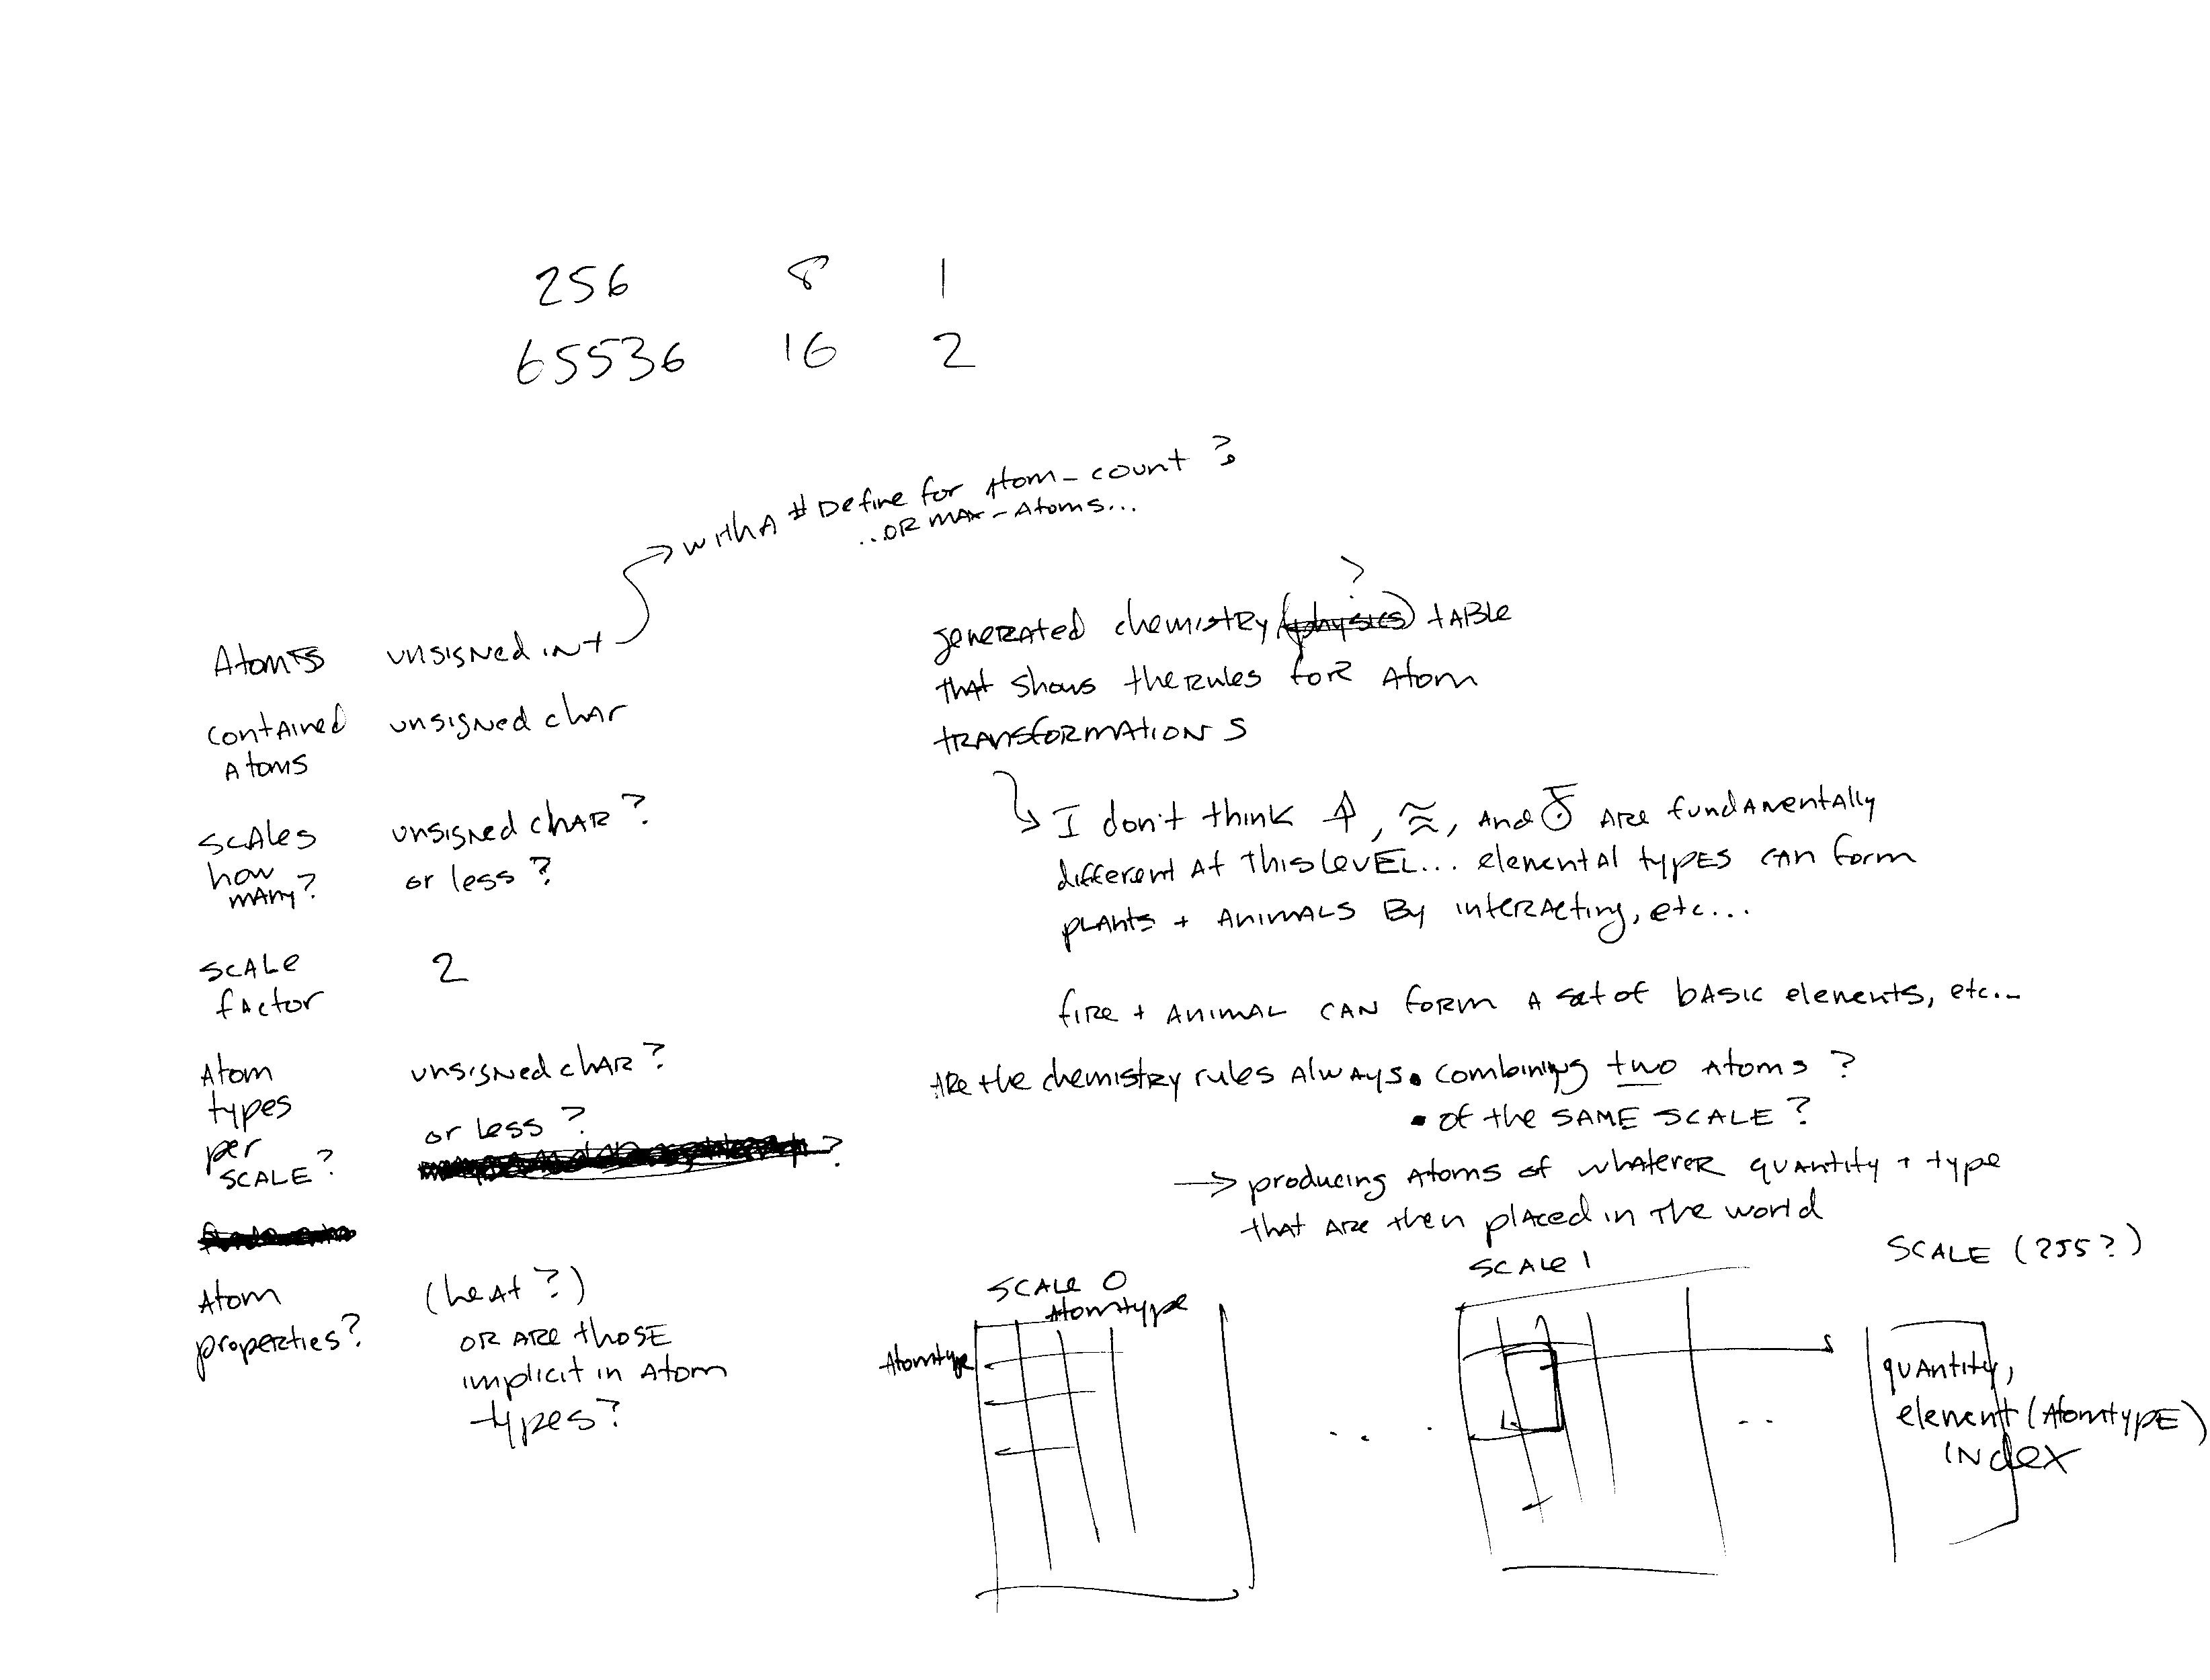 256 8 1
65536 16 2
with a #Define for Atom_count?
...or max-Atoms...
Atoms unsigned int
contained unsigned char
Atoms
scales unsigned char?
how or less?
many?
scale 2
factor
Atom unsigned char?
types
per or less?
scale? ?
Atom (heat?)
properties? or are those
implicit in Atom
types?
?
generated chemistry (physics) table
that shows the rules for Atom
transformations
I don't think , , and are fundamentally
different at this level... elemental types can form
plants + animals by interacting, etc...
fire + animal can form a set of basic elements, etc...
Are the chemistry rules always • combining two atoms?
• of the same scale?
→ producing atoms of whatever quantity + type
that are then placed in the world
scale 0
Atomtype
Atomtype
..
.
scale 1
..
scale (255?)
quantity,
element (Atomtype)
index